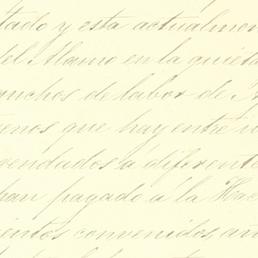 tado y esta actualmen
del Alamo en la quieta
anchos de labor de
enos que hay entre
vendados a diferent
han pagado á la Hac
ientos convenidos, an